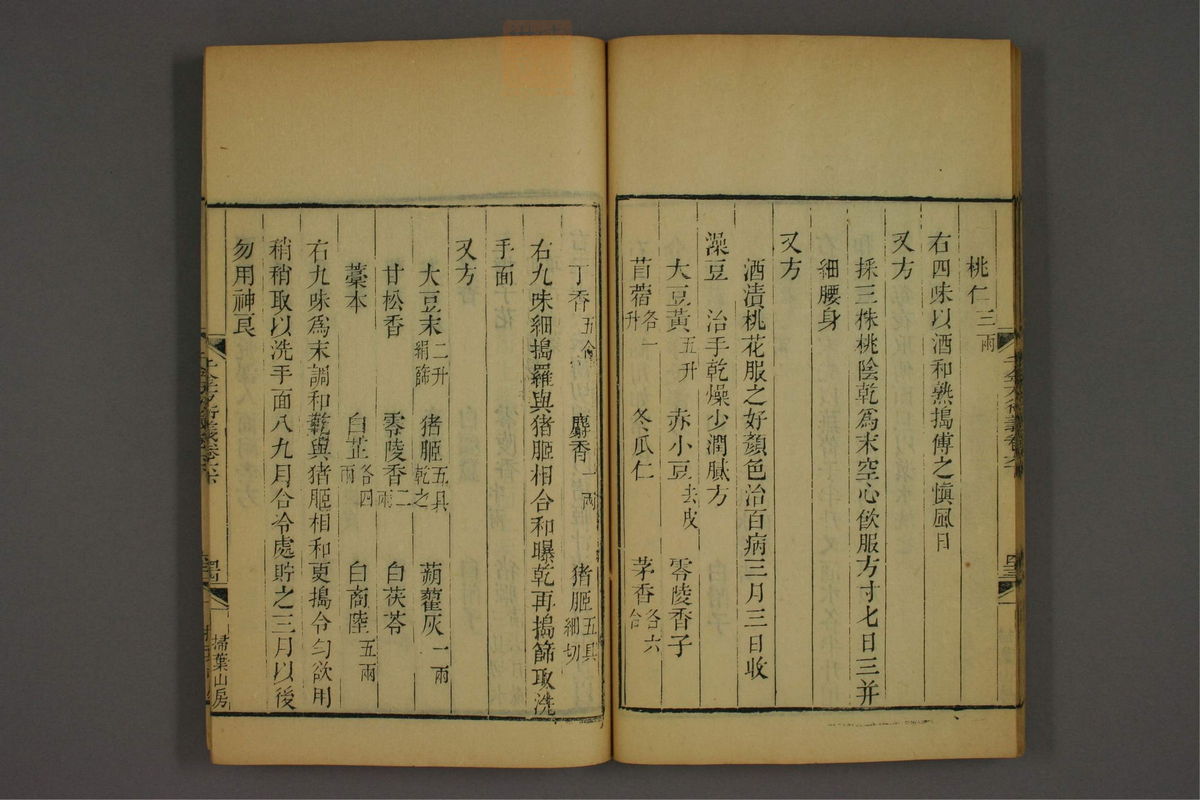 桃仁三兩
右四味以酒和熟搗傅之慎風日
又方
採三株桃陰乾爲末空心飲服方寸七日三并
細腰身
又方
酒漬桃花服之好顏色治百病三月三日收
澡豆 治手乾燥少潤膩方
大豆黃五升 赤小豆去皮 零陵香子
苜蓿各一升 冬瓜仁 茅香各六合
丁香五合 麝香一兩 猪胵五具細切
右九味細搗羅與猪胵相合和曝乾再搗篩取洗
手面
又方
大豆末二升絹篩 猪胵五具乾之 蒴藋灰一兩
甘松香 零陵香二兩 白茯苓
藁本 白芷各四兩 白商陸五兩
右九味爲末調和乾與猪胵相和更搗令勻欲用
稍稍取以洗手面八九月合冷處貯之三月以後
勿用神良
掃葉山房